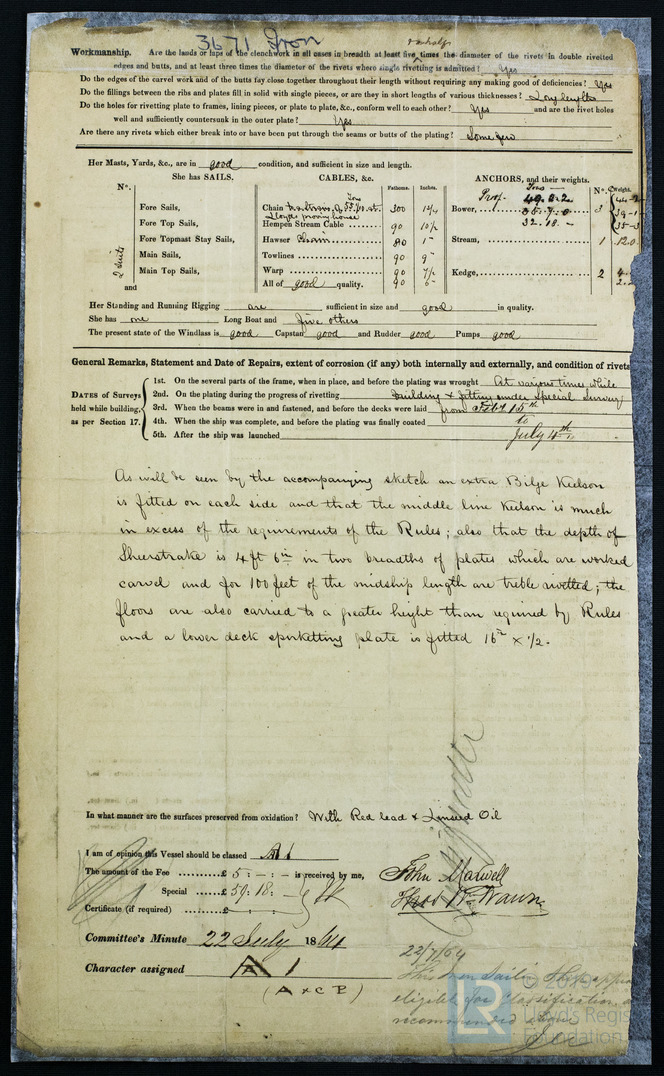 3671 Iron
& a half
Workmanship. Are the lands or laps of the clenchwork in all cases in breadth at least five times the diameter of the rivets in double rivetted
edges and butts, and at least three times the diameter of the rivets where single rivetting is admitted? Yes
Do the edges of the carvel work and of the butts lay close together throughout their length without requiring any making good of deficiencies? Yes
Do the fillings between the ribs and plates fill in solid with single pieces, or are they in short lengths of various thicknesses? Long lengths
Do the holes for rivetting plate to frames, lining pieces, or plate to plate, &c., conform well to each other? Yes and are the rivet holes
well and sufficiently countersunk in the outer plate? Yes
Are there any rivets which either break into or have been put through the seams or butts of the plating? Some few
Her Masts, Yards, &c., are in good condition, and sufficient in size and length.
She has SAILS. CABLES, &c. ANCHORS, and their weights.
No. Fathoms. Inches. No. Weight.
Fore Sails, Chain 300 Bower, 3
Lloyds proving house
Fore Top Sails, Hempen Stream Cable 90 10½ 32.18. –
Fore Topmast Stay Sails, Hawser Chain 80 1 Stream, 1 12.0
Main Sails, Towlines 90 9
Main Top Sails, Warp 90 7½ Kedge, 2
and All of good quality. 90 6
2 Suits
Her Standing and Running Rigging are sufficient in size and good in quality.
She has one Long Boat and five others
The present state of the Windlass is good Capstan good and Rudder good Pumps good
General Remarks, Statement and Date of Repairs, extent of corrosion (if any) both internally and externally, and condition of rivets
DATES of Surveys held while building, as per Section 17.
1st. On the several parts of the frame, when in place, and before the plating was wrought At various times while
2nd. On the plating during the progress of rivetting building & fitting under Special Survey
3rd. When the beams were in and fastened, and before the decks were laid from Feby 15th
4th. When the ship was complete, and before the plating was finally coated to
5th. After the ship was launched July 4th
As will be seen by the accompanying sketch an extra Bilge Keelson
is fitted on each side and that the middle line Keelson is much
in excess of the requirements of the Rules; also that the depth of
Sheerstrake is 4 ft 6 in in two breadths of plates which are worked
carvel and for 100 feet of the midship length are treble rivetted; the
floors are also carried to a greater height than required by Rules
and a lower deck spirketting plate is fitted 16in × ½.
In what manner are the surfaces preserved from oxidation? With Red lead & Linseed Oil
I am of opinion this Vessel should be classed A1
The amount of the Fee £ 5 : – : – is received by me,
Special £ 59 : 18 : –
Certificate (if required) £
John Maxwell
Committee's Minute 22 July 1864
Character assigned A 1
(A & C P)
22/7/64
eligible for Classification
recommended above
© 2019
LR
Lloyd's Register
Foundation